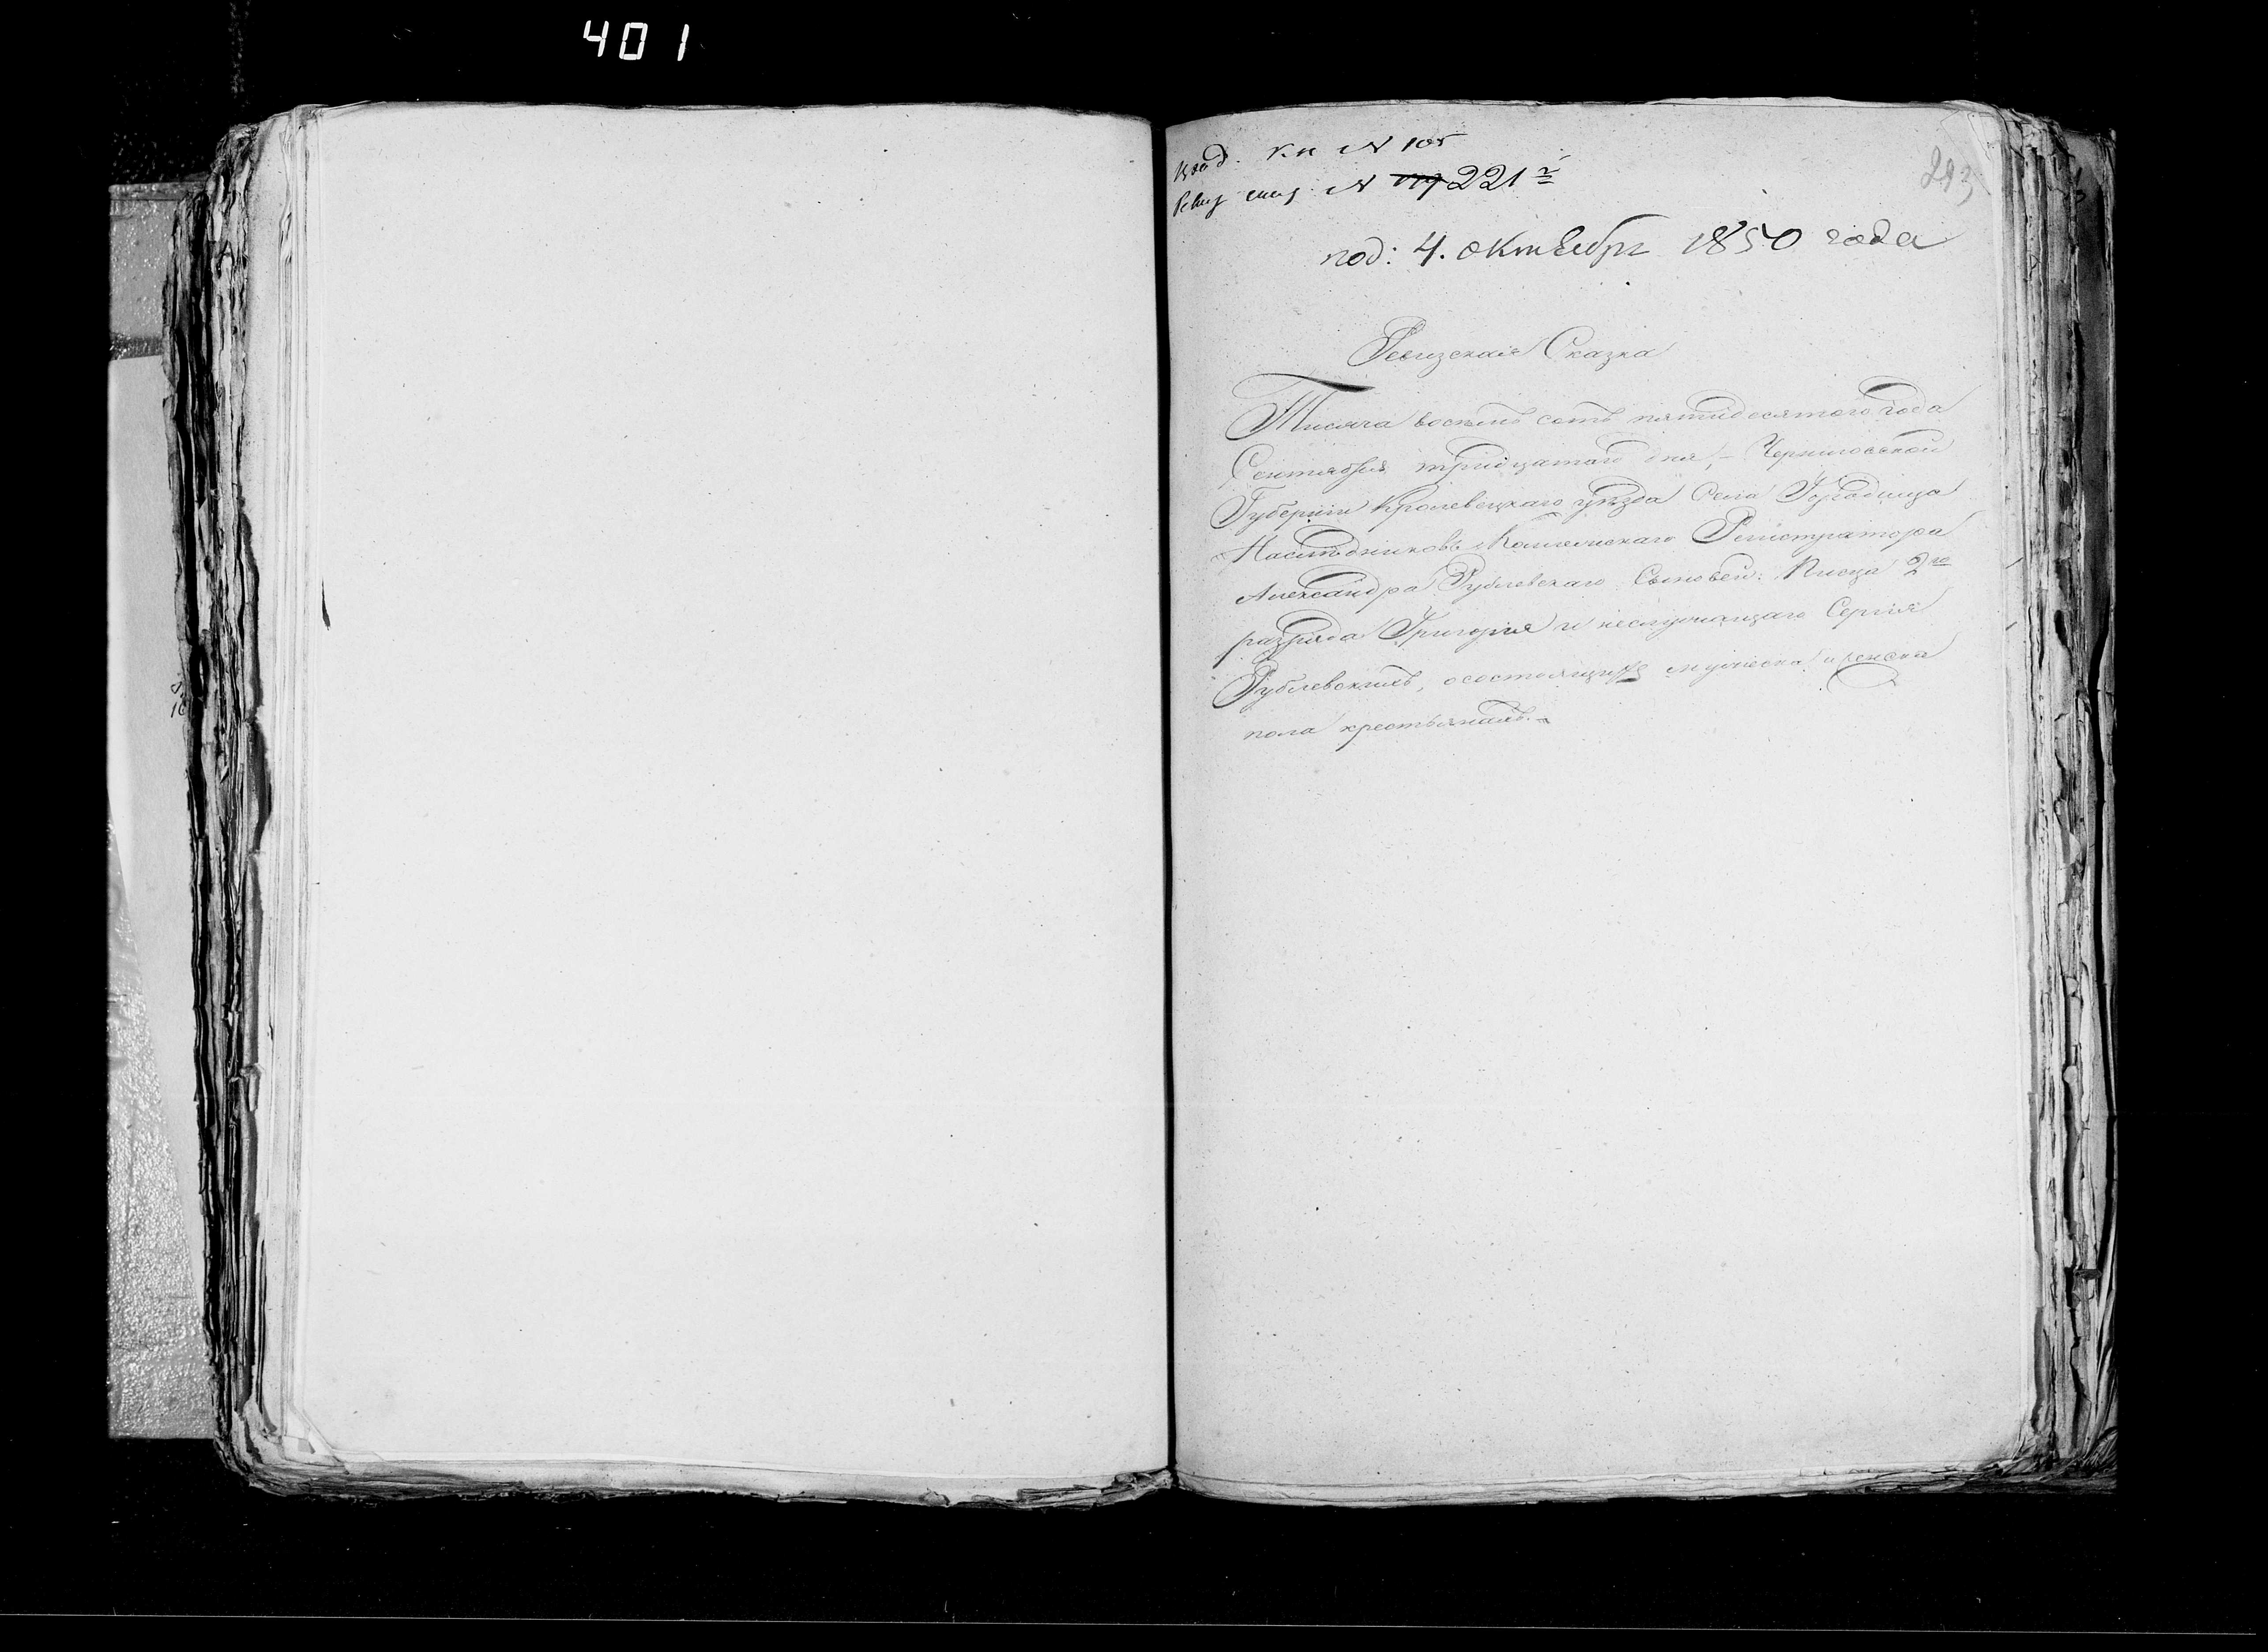 401
Вход. кн № 105
Ревиз сказ № 221й
293
под: 4. октября 1850 года
Ревизская Сказка
Тисяча восемь сотъ пятидесятого года
Сентября тридцатого дня, – Черниговской
Губернiи Кролевецкаго уѣзда Села
Наслѣдниковъ Коллежскаго Регистратора
Александра Рублевскаго Сыновей: Писца 2го
разряда Григорiя и неслужащаго Сергiя
Рублевскихъ, осостоящихъ мужеска и женска
пола крестьянахъ. –